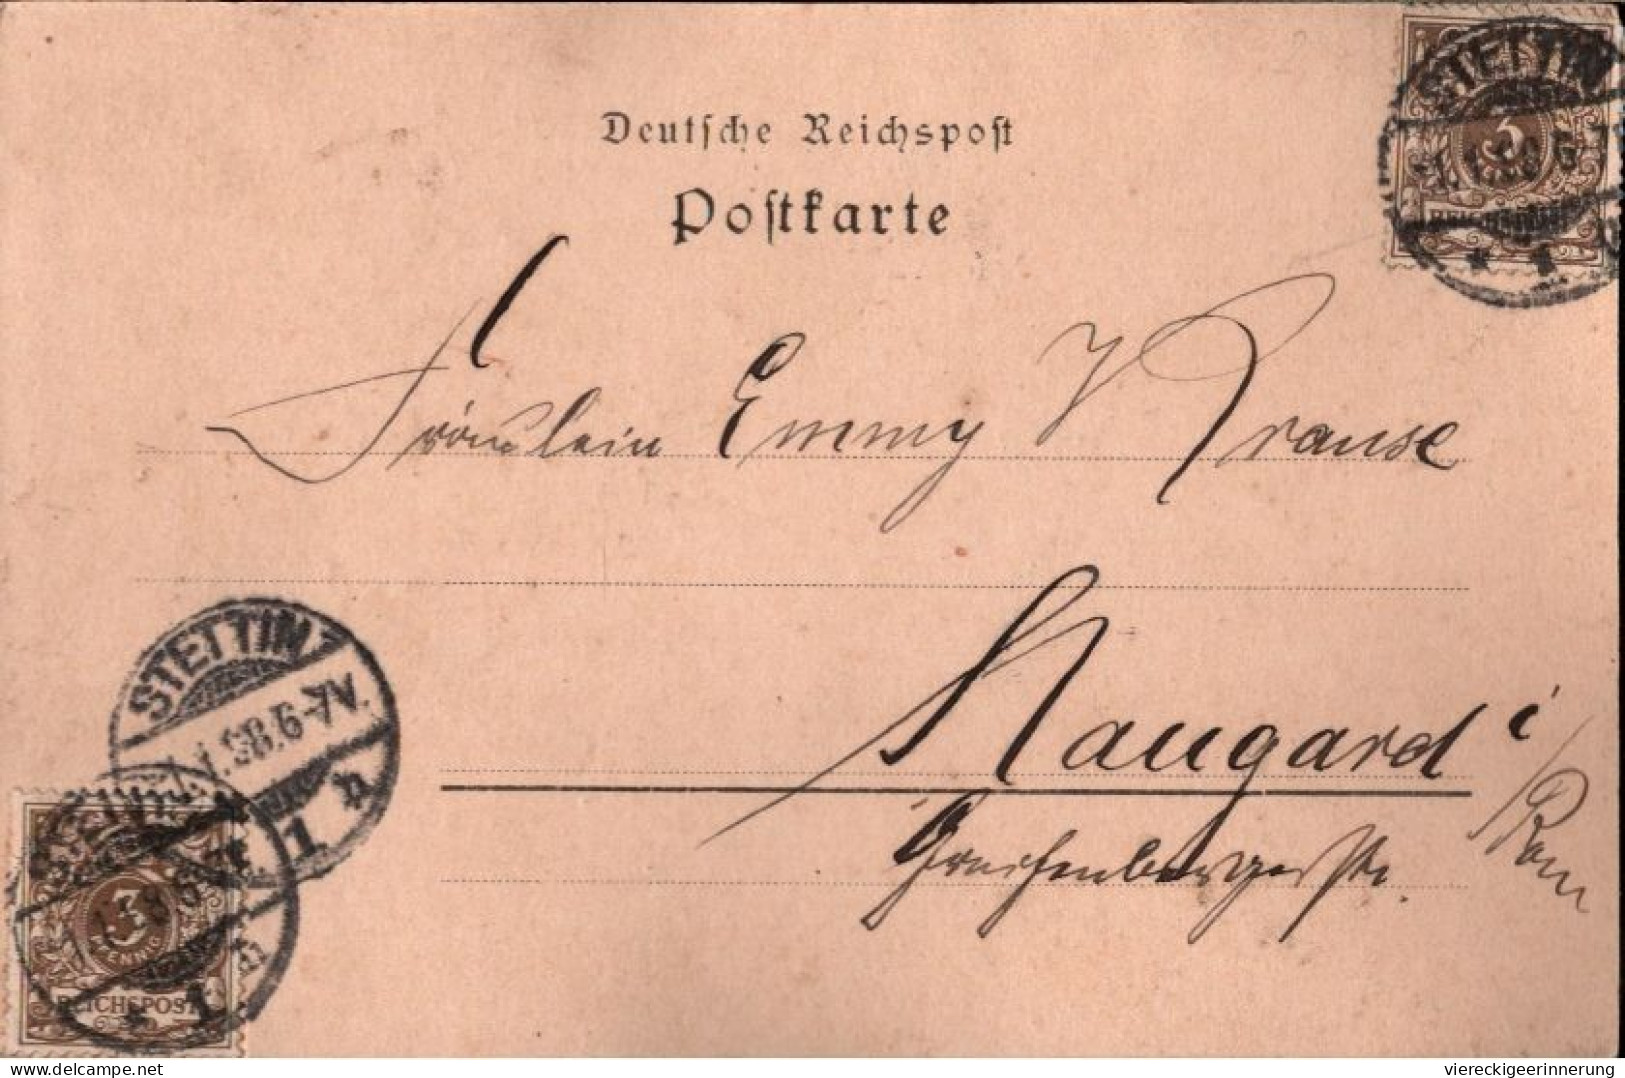 Deutsche Reichspost
Postkarte
STETTIN
3
REICHSPOST
Fräulein Emmy Krause
Naugard i/Pom
Greifenbergerstr.
STETTIN
1.98.9-
1
3
PFENNIG
REICHSPOST
www.delcampe.net
viereckigeerinnerung